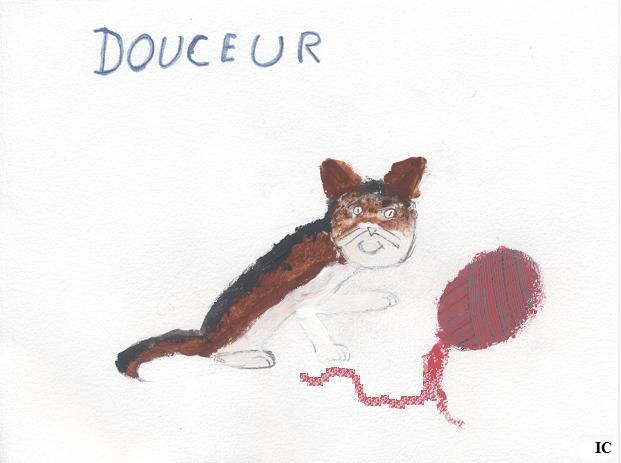 DOUCEUR
IC